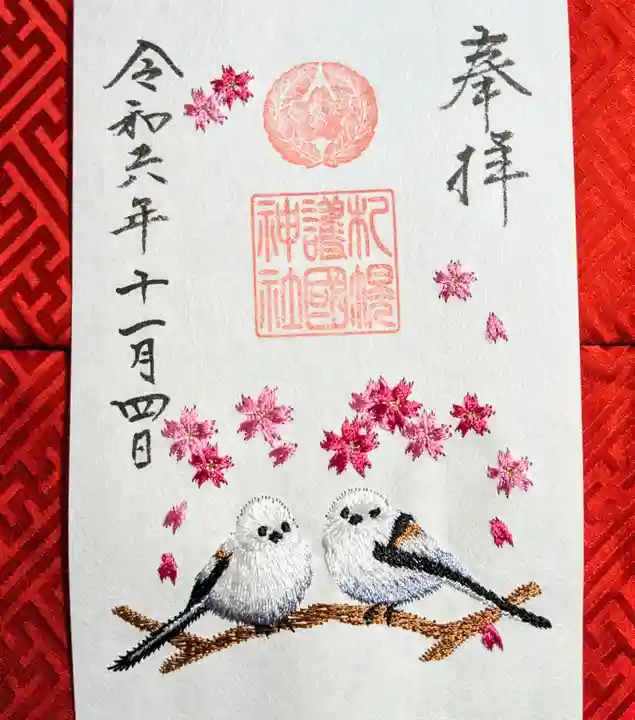 奉拝
札幌
護國
神社
令和六年十一月四日